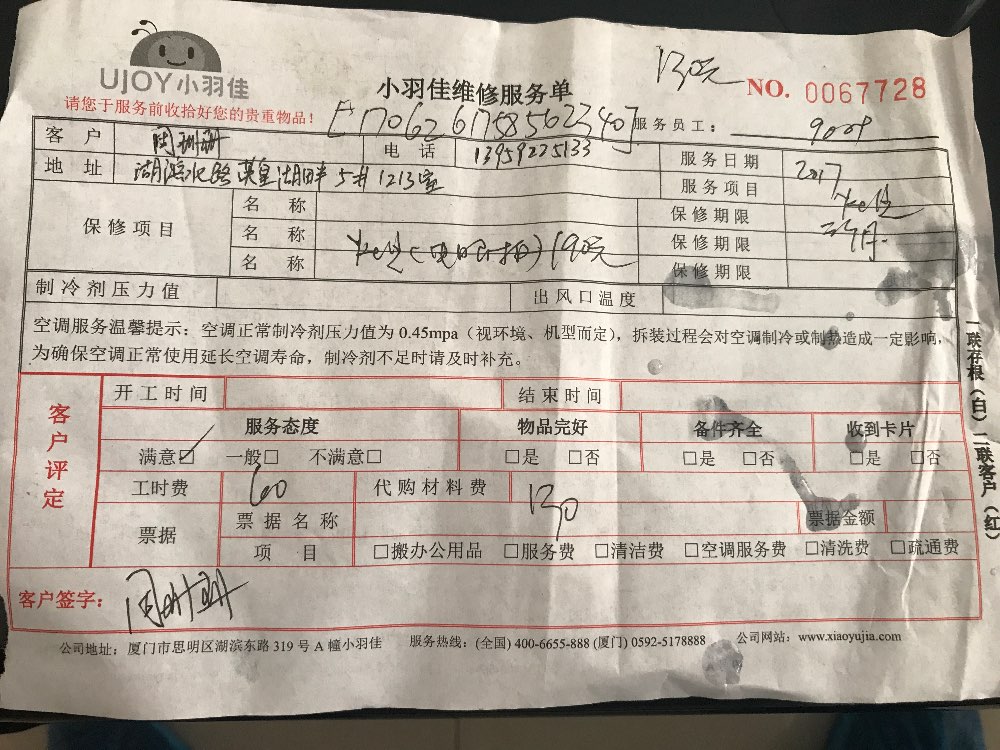 UJOY小羽佳
小羽佳维修服务单
130元
NO. 0067728
请您于服务前收拾好您的贵重物品！
服务员工： 9009
客户
电话 13959225133
服务日期 2017
地址 湖滨北路英皇湖畔 5# 1213室
服务项目
保修项目
名称
保修期限
名称
保修期限
名称 190元
保修期限
制冷剂压力值
出风口温度
空调服务温馨提示：空调正常制冷剂压力值为 0.45mpa（视环境、机型而定），拆装过程会对空调制冷或制热造成一定影响，
为确保空调正常使用延长空调寿命，制冷剂不足时请及时补充。
客户评定
开工时间
结束时间
服务态度
物品完好
备件齐全
收到卡片
满意☑ 一般□ 不满意□
□是 □否
□是 □否
□是 □否
工时费 60
代购材料费 130
票据
票据名称
票据金额
项目
□搬办公用品 □服务费 □清洁费 □空调服务费 □清洗费 □疏通费
客户签字：
公司地址：厦门市思明区湖滨东路 319 号 A 幢小羽佳
服务热线：(全国) 400-6655-888 (厦门) 0592-5178888
公司网站：www.xiaoyujia.com
一联存根（白）二联客户（红）